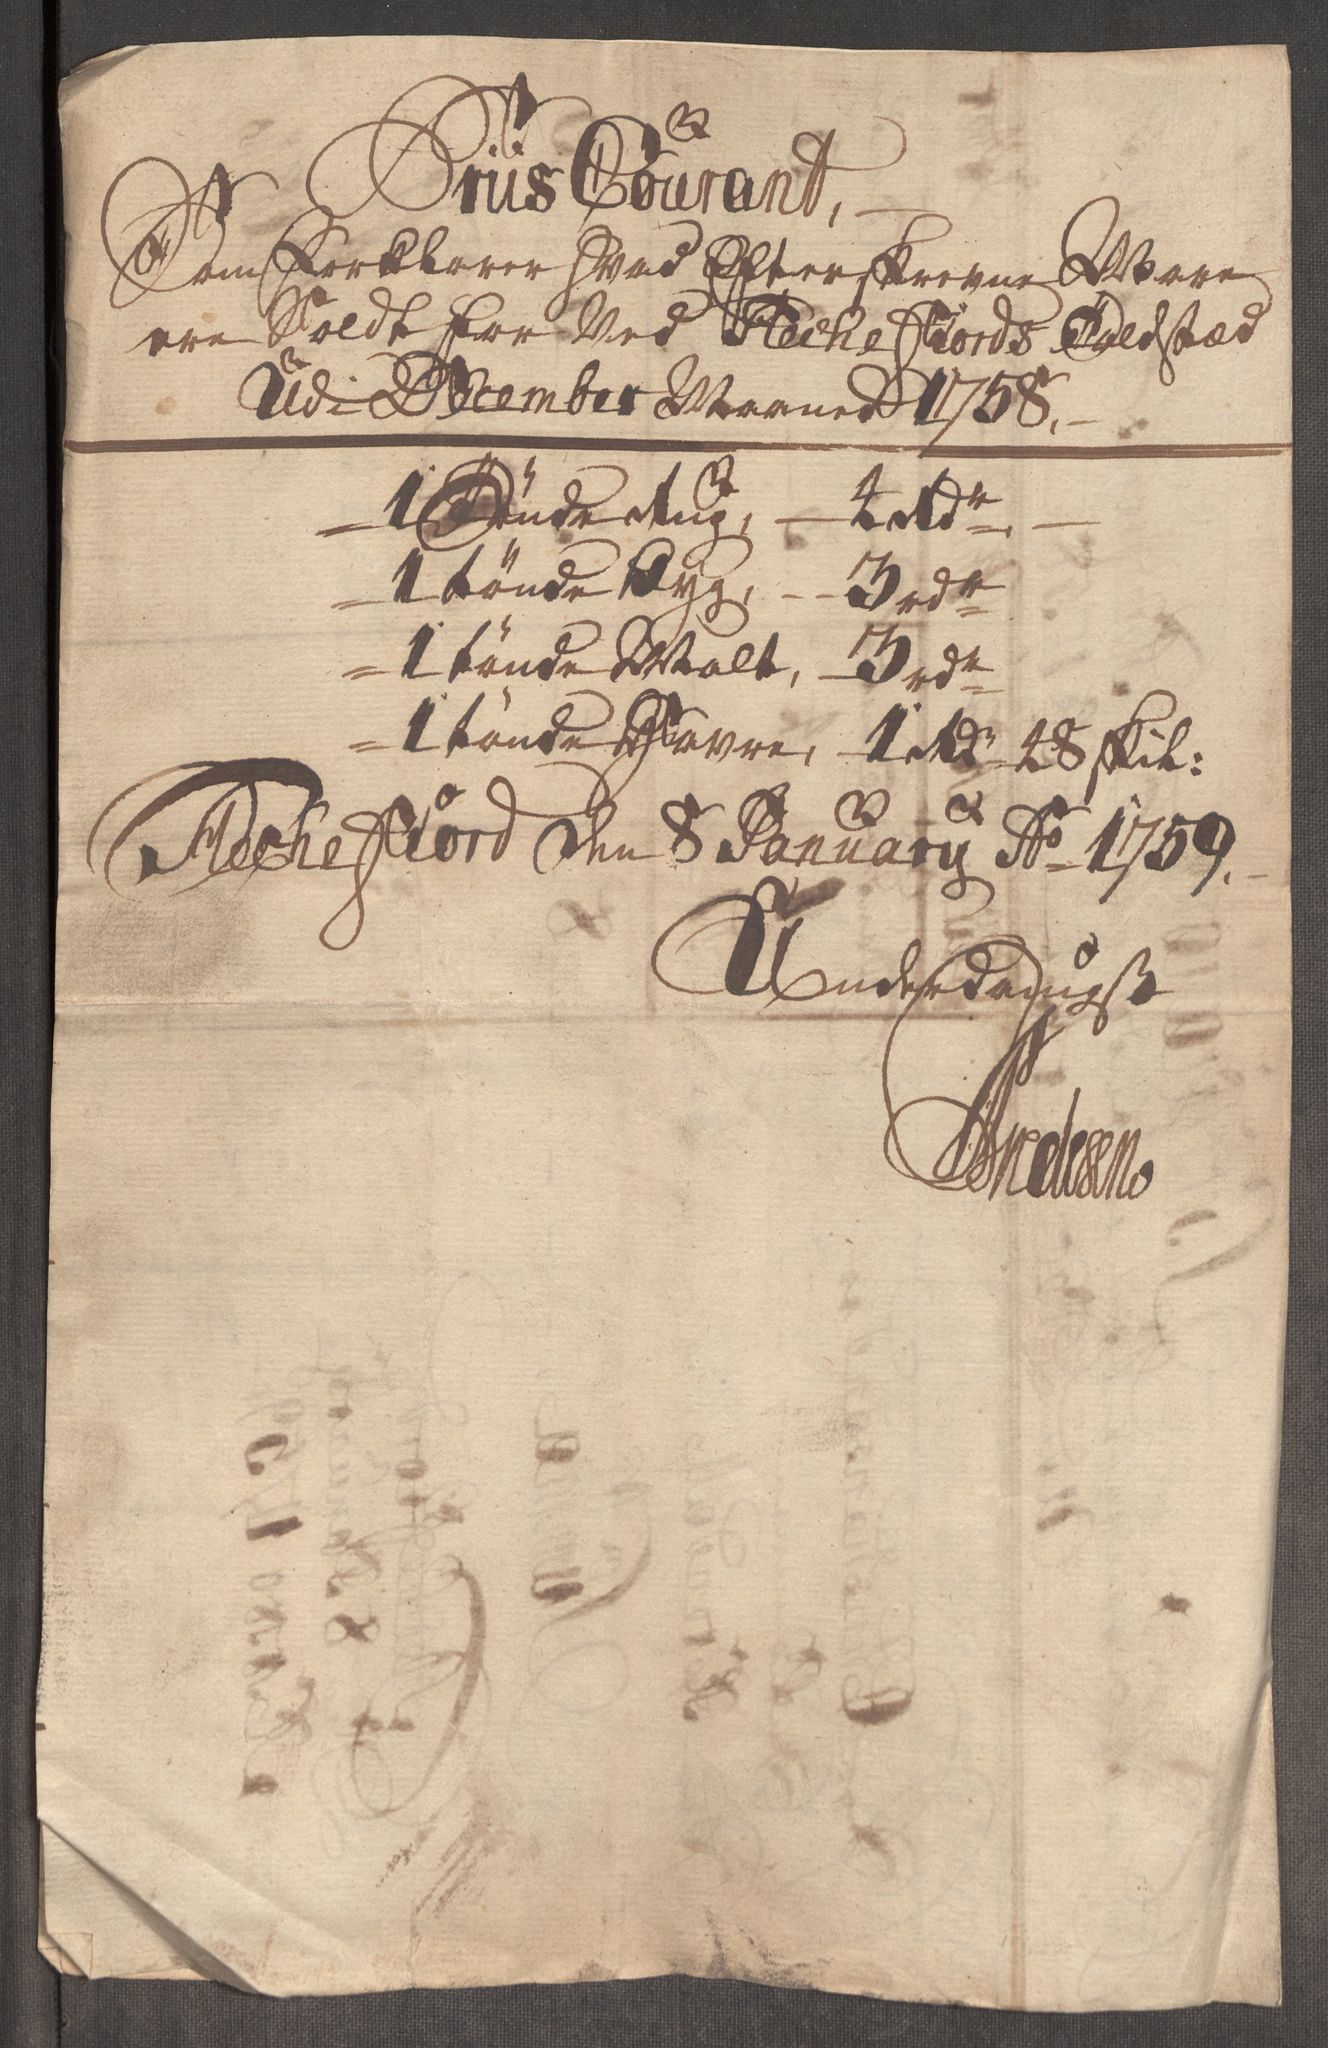 Priis Courant,
Som forklarer hvad Efterskrevne Vare
ere Soldt for Ved Flechefiords Toldstæd
Udi December Maaned 1758.
1 Tönde Rug, 4 Rdr
1 tönde Byg, 3 rdr
1 tönde Malt, 3 rdr
1 tönde Havre, 1 Rdr 48 skil:
Flechefiord den 8 January Ao 1759.
Underdanigst
Andresen